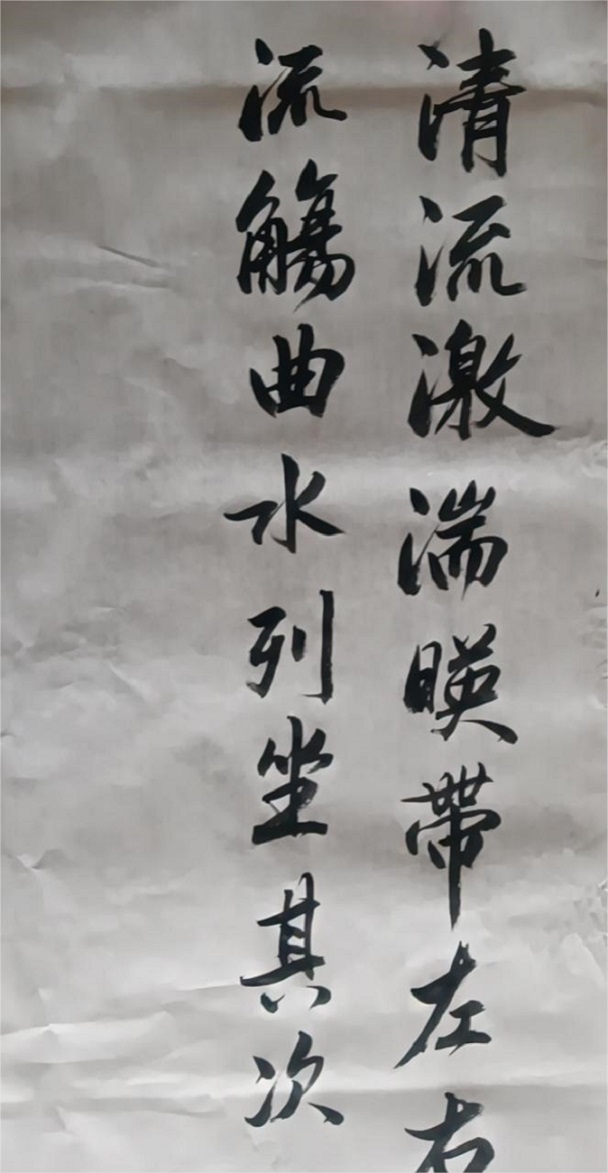 清流激湍暎帶左右
流觴曲水列坐其次